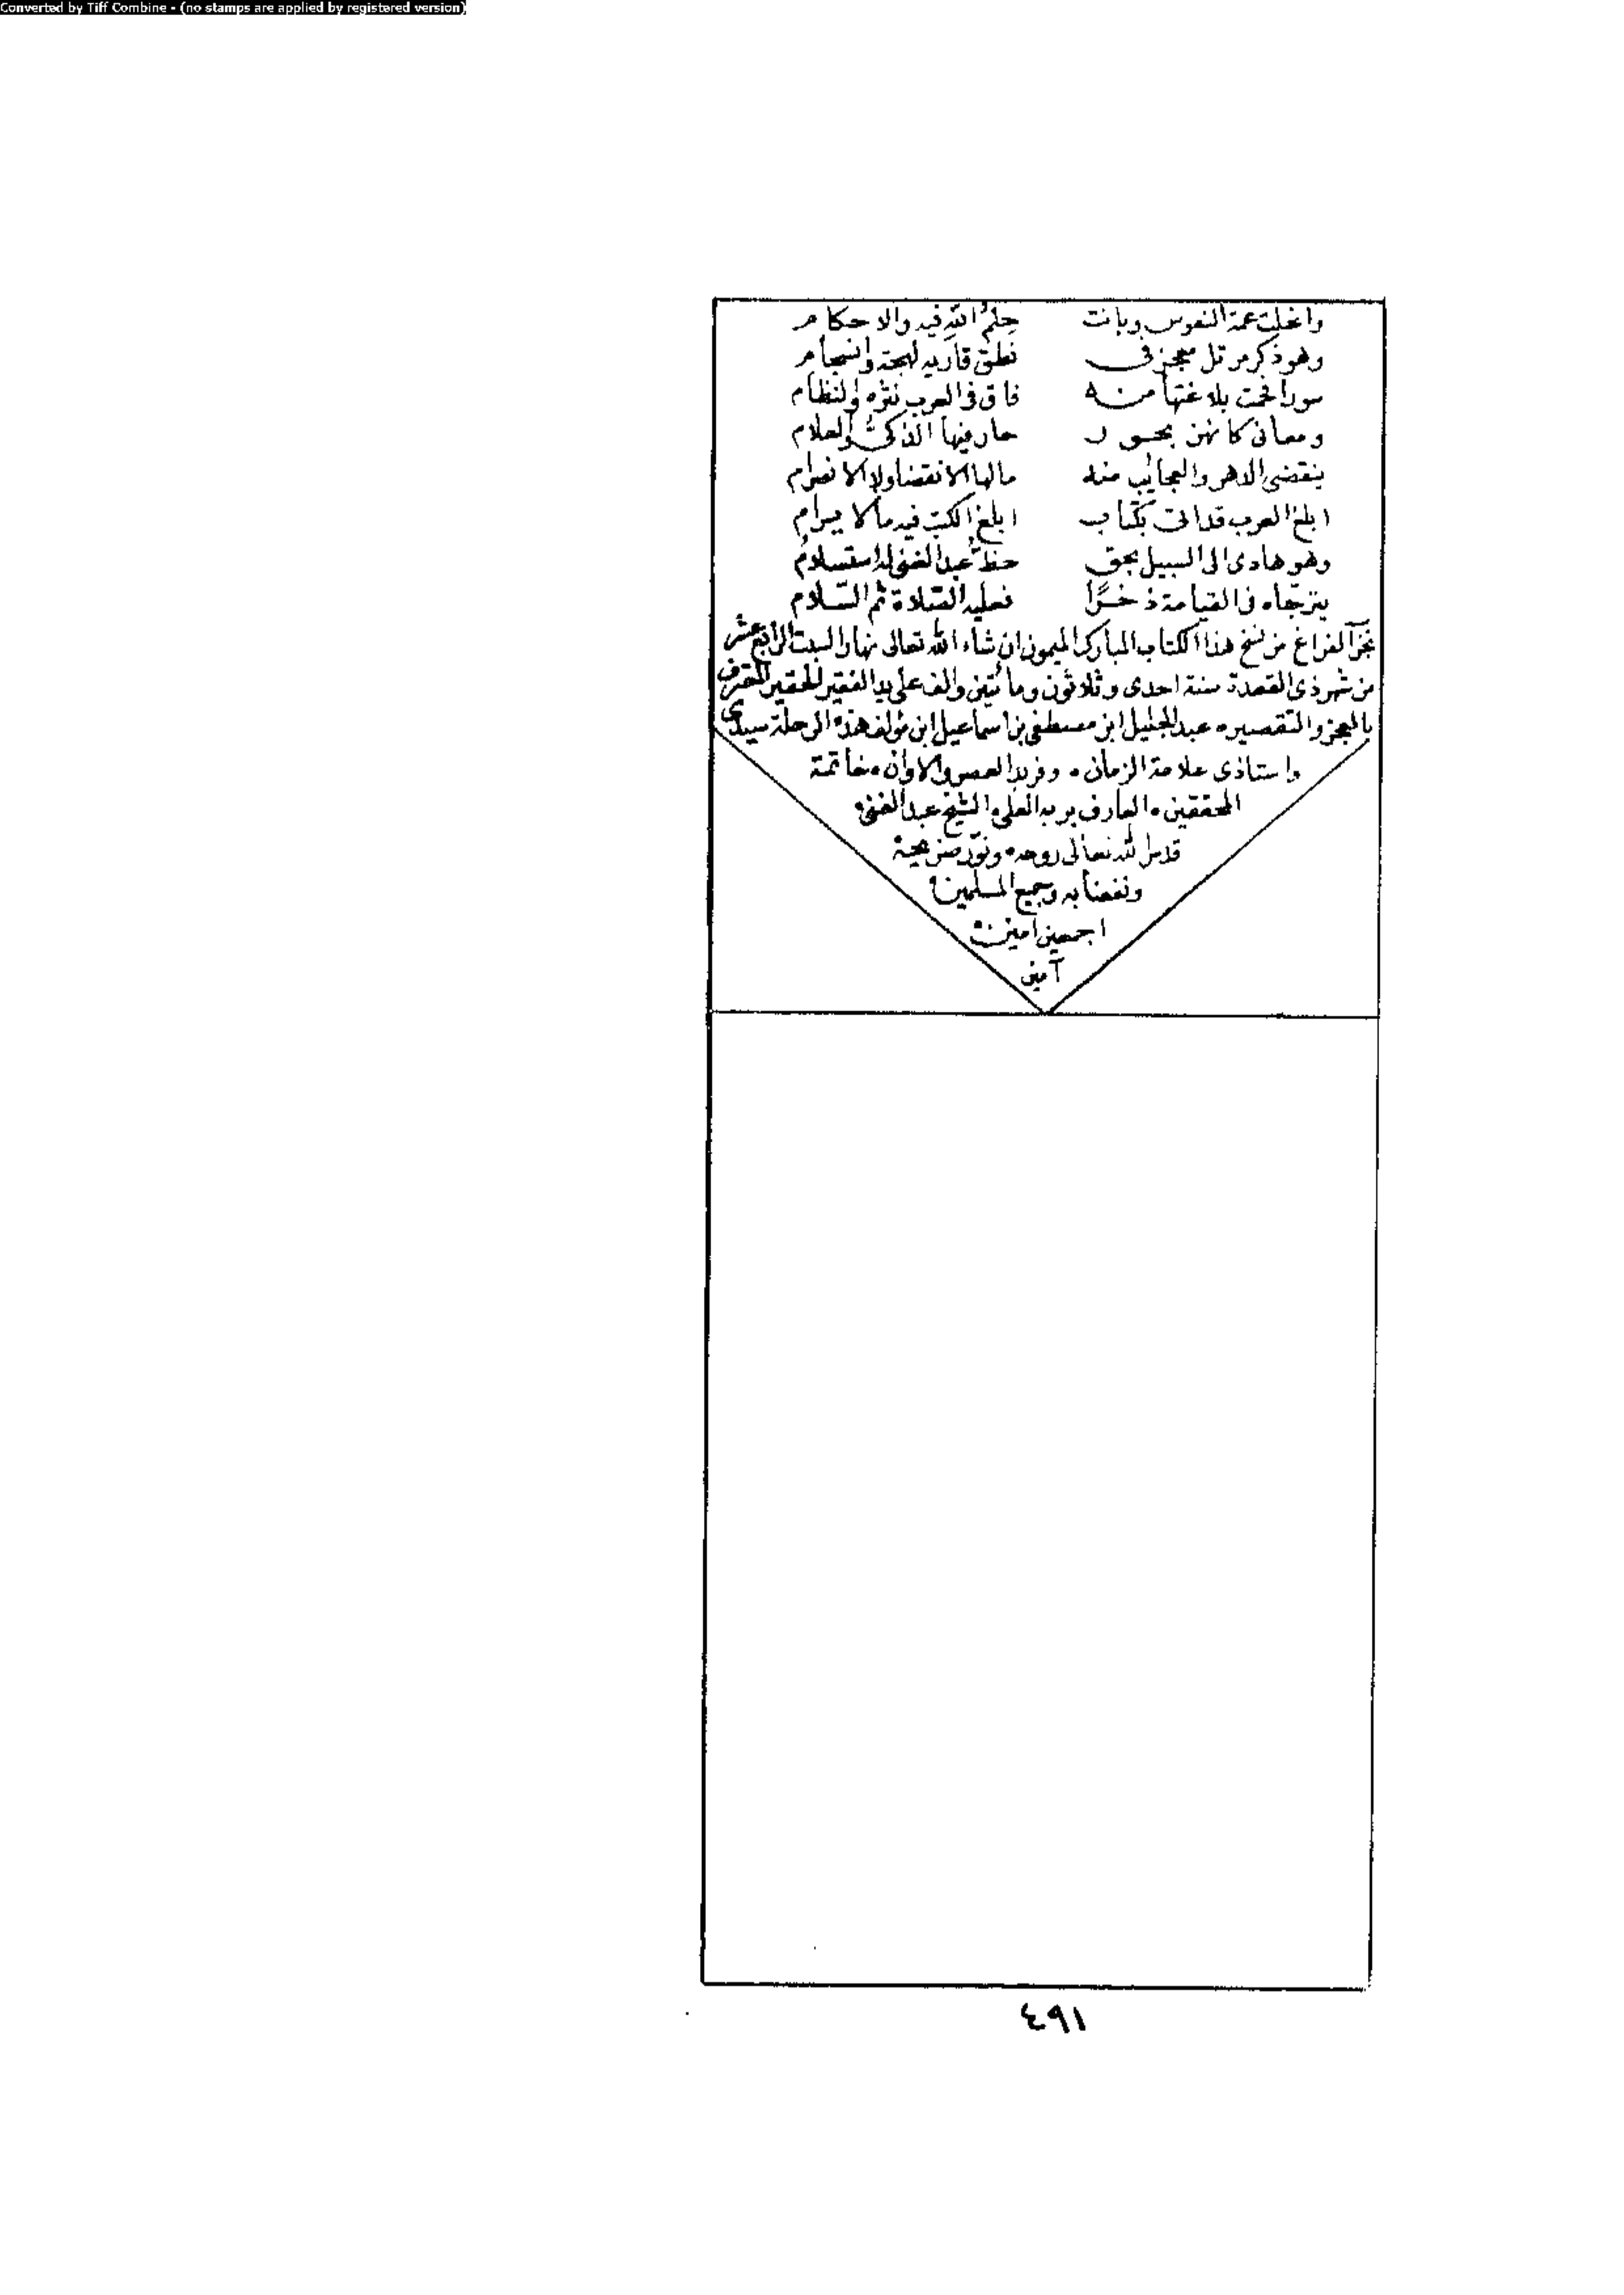 Converted by Tiff Combine - (no stamps are applied by registered version)
وانجلت غمة النفوس وبانت حكم الله فيه والاحكام
وهو ذكر مرتل معجز في نطق قاريه لهجة وانسجام
سور افحمت بلاغتها منه فاق في العرب نثره والنظام
ومعاني كانهن بحور حار فيها الذكي والعلام
ينقضي الدهر والعجايب منه مالها الانقضا ولا الانصرام
ابلغ العرب قد اتى بكتاب ابلغ الكتب فيه مالا يرام
وهو هادى الى السبيل بحق حظ عبد الغنى له استسلام
يترجاه في القيامة ذخرًا فعليه الصّلاة ثم السّلام
نجز الفراغ من نسخ هذا الكتاب المبارك الميمون ان شاء الله تعالى نهار السبت الرابع عشر
من شهر ذى القعدة سنة احدى وثلاثون ومأتين والف على يد الفقير الحقير المعترف
بالعجز والتقصير عبد الجليل ابن مصطفى بن اسماعيل ابن مؤلف هذه الرحلة سيدى
واستاذى علامة الزمان وفريد العصر والاوان خاتمة
المحققين العارف بربه العلى الشيخ عبد الغنى
قدس الله تعالى روحه ونوّر ضريحه
ونفعنا به وجميع المسلمين
اجمعين امين
آمين
٤٩١